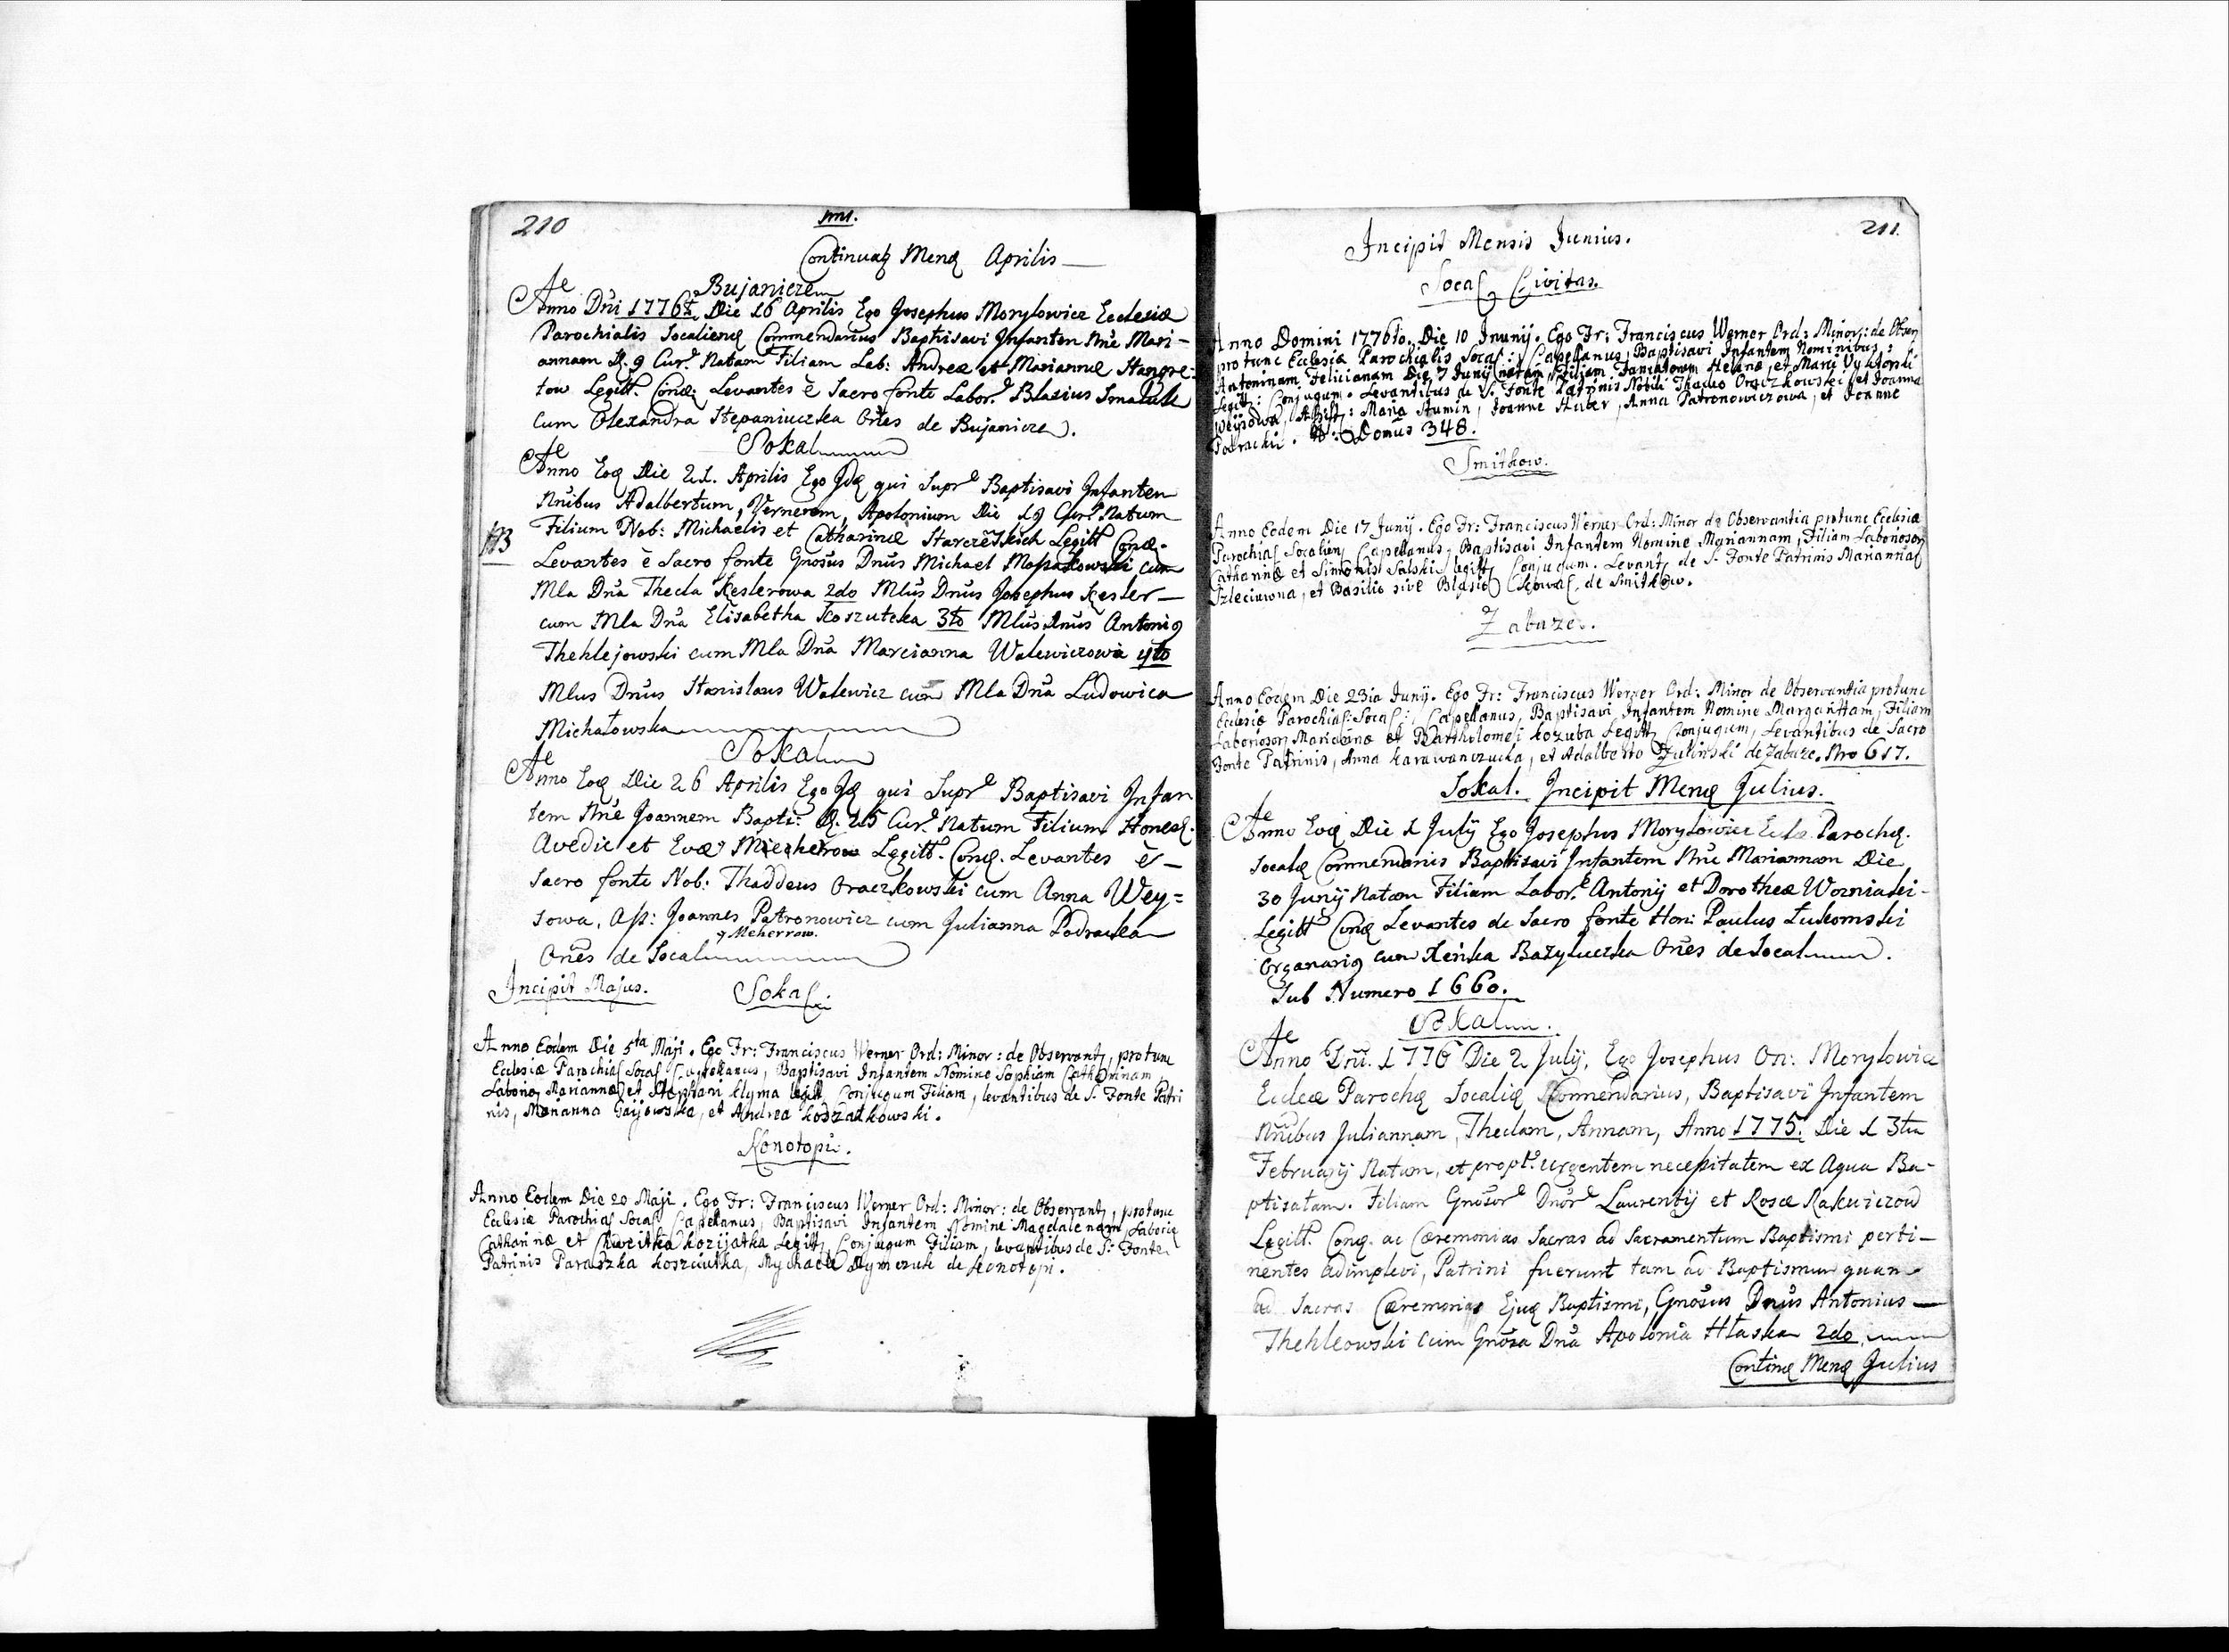 210
Continuaʒ Mensę Aprilis
Bujanicze
Ae
Anno Dñi 1776t. Die 16 Aprilis Ego Josephus Morylowicz Ecclesiæ
Parochialis Socalienę Commendarius Baptisavi Infantem Nñe Mari-
annam D. 9 Curr. Natam Filiam Lab: Andreæ et Mariannæ Hangre:
tow Legitt. Conę: Levantes è Sacro fonte Labor. Blasius
cum Olexandra Stepaniuczka Oñes de Bujanicze.
Sokal
Ae
Anno Eoę Die 21. Aprilis Ego Idę qui Supr Baptisavi Infantem
Nñibus Adalbertum, Vernerem, Apolonium Die 19 Curr. Natum
NB Filium Nob: Michaelis et Catharinæ Starczewskich Legitt Conę.
Levantes è Sacro fonte Gnosus Dñus Michael cum
Mla Dña Thecla Keslerowa 2do Mlus Dñus Josephus Kesler
cum Mla Dña Elisabetha Koszutska 3to Mlus Dñus Antonię
Thehlejowski cum Mla Dña Marcianna Walewiczowa 4to
Mlus Dñus Stanislaus Walewicz cum Mla Dña Ludowica
Michałowska
Sokal
Ae
Anno Eoę Die 26 Aprilis Ego Idę qui Supr Baptisavi Infan
tem Nñe Joannem Bapti: D. 25 Cur. Natum Filium Honesę.
Avedic et Evæ Legitt. Conę. Levantes è
Sacro fonte Nob: Thaddeus Oraczkowski cum Anna Wey=
sowa, Ass: Joannes Patronowicz cum Julianna Podracka
+ Meherrow.
Oñes de Socal
Incipit Majus. Sokal.
Anno Eodem Die 5ta Maji. Ego Fr: Franciscus Werner Ord: Minor: de Observant, protunc
Ecclesiæ Parochial Socal Capellanus, Baptisavi Infantem Nomine Sophiam Catharinam,
Laborio, Mariannæ et Stephani Klyma legitt Conjugum Filiam, levantibus de S. Fonte Patri
nis, Marianna Gaijowska, et Andrea
Konotopi.
Anno Eodem Die 20 Maji. Ego Fr: Franciscus Werner Ord: Minor: de Observant, protunc
Ecclesiæ Parochial Socal Capellanus, Baptisavi Infantem Nomine Magdalenam, Laborię
Catharinæ et Kozijatka Legitt, Conjugum Filiam, levantibus de S: Fonte
Patrinis Paraszka Mychaele Dymczuk de Konotopi.
211.
Incipit Mensis Junius.
Socal Civitas.
Anno Domini 1776to. Die 10 Junij. Ego Fr: Franciscus Werner Ord: Minor: de Obser
protunc Ecclesiæ Parochialis Socal: Capellanus, Baptisavi Infantem Nominibus
Antoninam Felicianam Die 7 Junij natam, Filiam Helenæ, et
Legitt: Conjugum. Levantibus de S. Fonte Patrinis Nobili Thadeo Oraczkowski et Joanna
Weysowa, Assist: Maria Joanne Huber, Anna Patronowiczowa, et Joanne
Podracki. N: Domus 348.
Smitkow.
Anno Eodem Die 17 Junij. Ego Fr: Franciscus Werner Ord: Minor de Observantia protunc Ecclesiæ
Parochial Socalien, Capellanus, Baptisavi Infantem Nomine Mariannam, Filiam Laboriosor
Catharinæ et Simonis Salski legitt, Conjugum. Levant, de S. Fonte Patrinis Marianna
et Basilio sive Blasio de Smitkow.
Zabuze.
Anno Eodem Die 23ia Junij. Ego Fr: Franciscus Werner Ord: Minor de Observantia protunc
Ecclesiæ Parochial: Socal: Capellanus, Baptisavi Infantem Nomine Margarittam, Filiam
Laboriosor, et Bartholomei Kozuba Legitt, Conjugum, Levantibus de Sacro
Fonte Patrinis, Anna et Adalberto Zulinski de Zabuze. Nro 617.
Sokal. Incipit Mensę Julius.
Ae
Anno Eoę Die 1 July Ego Josephus Morylowicz Ecle. Parochę.
Socalę Commendarius Baptisavi Infantem Nñe Mariannam Die
30 Junij Natam Filiam Labor. Antonij et Dorotheæ Wozniaki
Legitt Conę Levantes de Sacro fonte Hon: Paulus Lukomski
Organarię cum Xenka Bazyluczka Oñes de Socal.
Sub Numero 1660.
Sokal.
Ae
Anno Dñi. 1776 Die 2 July, Ego Josephus On: Morylowicz
Eccleæ Parochę Socalię Commendarius, Baptisavi Infantem
Nñibus Juliannam, Theclam, Annam, Anno 1775. Die 13tia
Februarij Natam, et propt. urgentem necessitatem ex Aqua Ba-
ptisatam. Filiam Gnosor Dñor Laurentij et Rosæ Rakwiczow
Legitt. Conę. ac Cæremonias Sacras ad Sacramentum Baptismi perti-
nentes adimplevi, Patrini fuerunt tam ad Baptismum quam
ad Sacras Cæremonias Ejuę Baptismi, Gnosus Dñus Antonius
Thehleowski cum Gnosa Dña Apolonia Hłaska 2do
Continę Mensę Julius